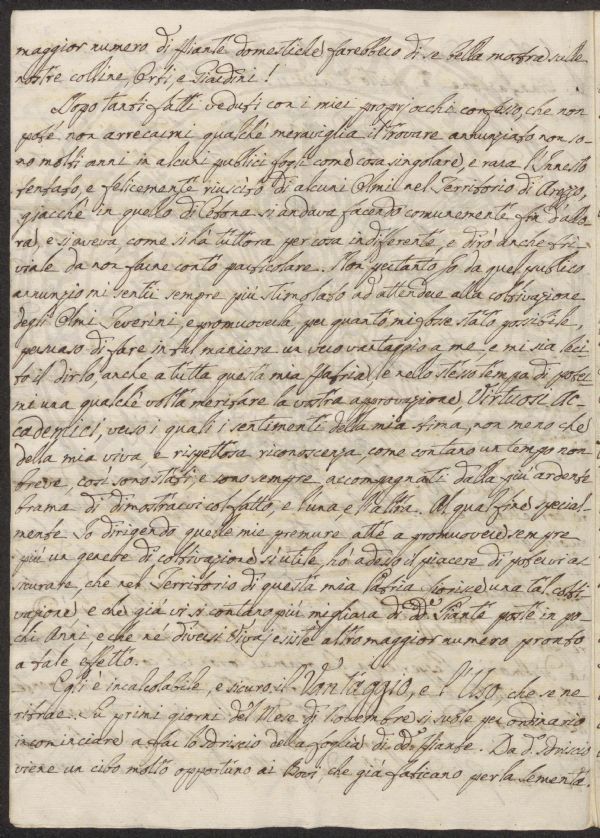 maggior numero di Piante domestiche farebbero di se bella mostra sulle
nostre colline, Orti, e Giardini!
Dopo tanti fatti veduti con i miei proprj occhi confesso, che non
poté non arrecarmi qualche meraviglia il trovare annunziato non so-
no molti anni in alcuni publici fogli come cosa singolare, e rara l'Innesto
tentato, e felicemente riuscito di alcuni Olmi nel Territorio di Arezzo,
giacchè in quello di Cetona si andava facendo comunemente fin d'allo-
ra, e si aveva, come si há tuttora per cosa indifferente, e diró anche tri-
viale da non farne conto particolare. Non pertanto Io da quel publico
annunzio mi sentii sempre piú stimolato ad attendere alla coltivazione
degli Olmi Peverini, e promuoverla, per quanto mi fosse stato possibile,
persuaso di fare in tal maniera un vero vantaggio a me, e mi sia leci-
to il dirlo, anche a tutta questa mia Patria, e nello stesso tempo di poter-
mi una qualche volta meritare la vostra approvazione, Virtuosi Ac-
cademici, verso i quali i sentimenti della mia stima, non meno che
della mia viva, e rispettosa riconoscenza, come contano un tempo non
breve, cosí sono stati, e sono sempre accompagnati dalla piú ardente
brama di dimostrarvi col fatto, e l'una e l'altra. Al qual fine special-
mente Io dirigendo queste mie premure atte a promuovere sempre
piú un genere di coltivazione sí utile, hó adesso il piacere di potervi as-
sicurare, che nel Territorio di questa mia Patria fiorisce una tal colti-
vazione, e che giá vi si contano piú migliara di dd.e Piante poste in po-
chi Anni, e che ne diversi Vivaj esiste altro maggior numero pronto
a tale effetto.
Egli è incalcolabile, e sicuro il Vantaggio, e l'Uso, che se ne
ritrae. Ai primi giorni del Mese di Novembre si suole per ordinario
incominciare a far lo sdriscio della foglia di dd.e Piante. Da d.o sdriscio
viene un cibo molto opportuno ai Bovi, che giá faticano per la sementa.